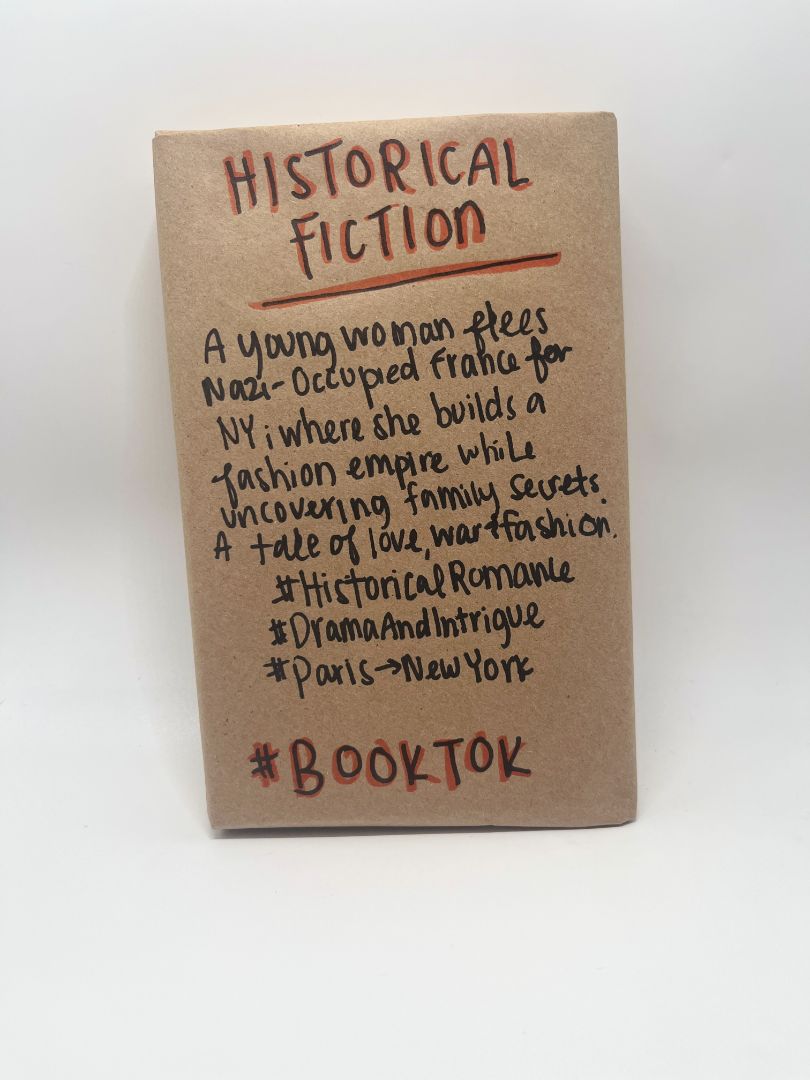 HISTORICAL
FICTION
A young woman flees
Nazi-Occupied France for
NY; where she builds a
fashion empire while
uncovering family secrets.
A tale of love, war+fashion.
#HistoricalRomance
#DramaAndIntrigue
#Paris→NewYork
#BOOKTOK